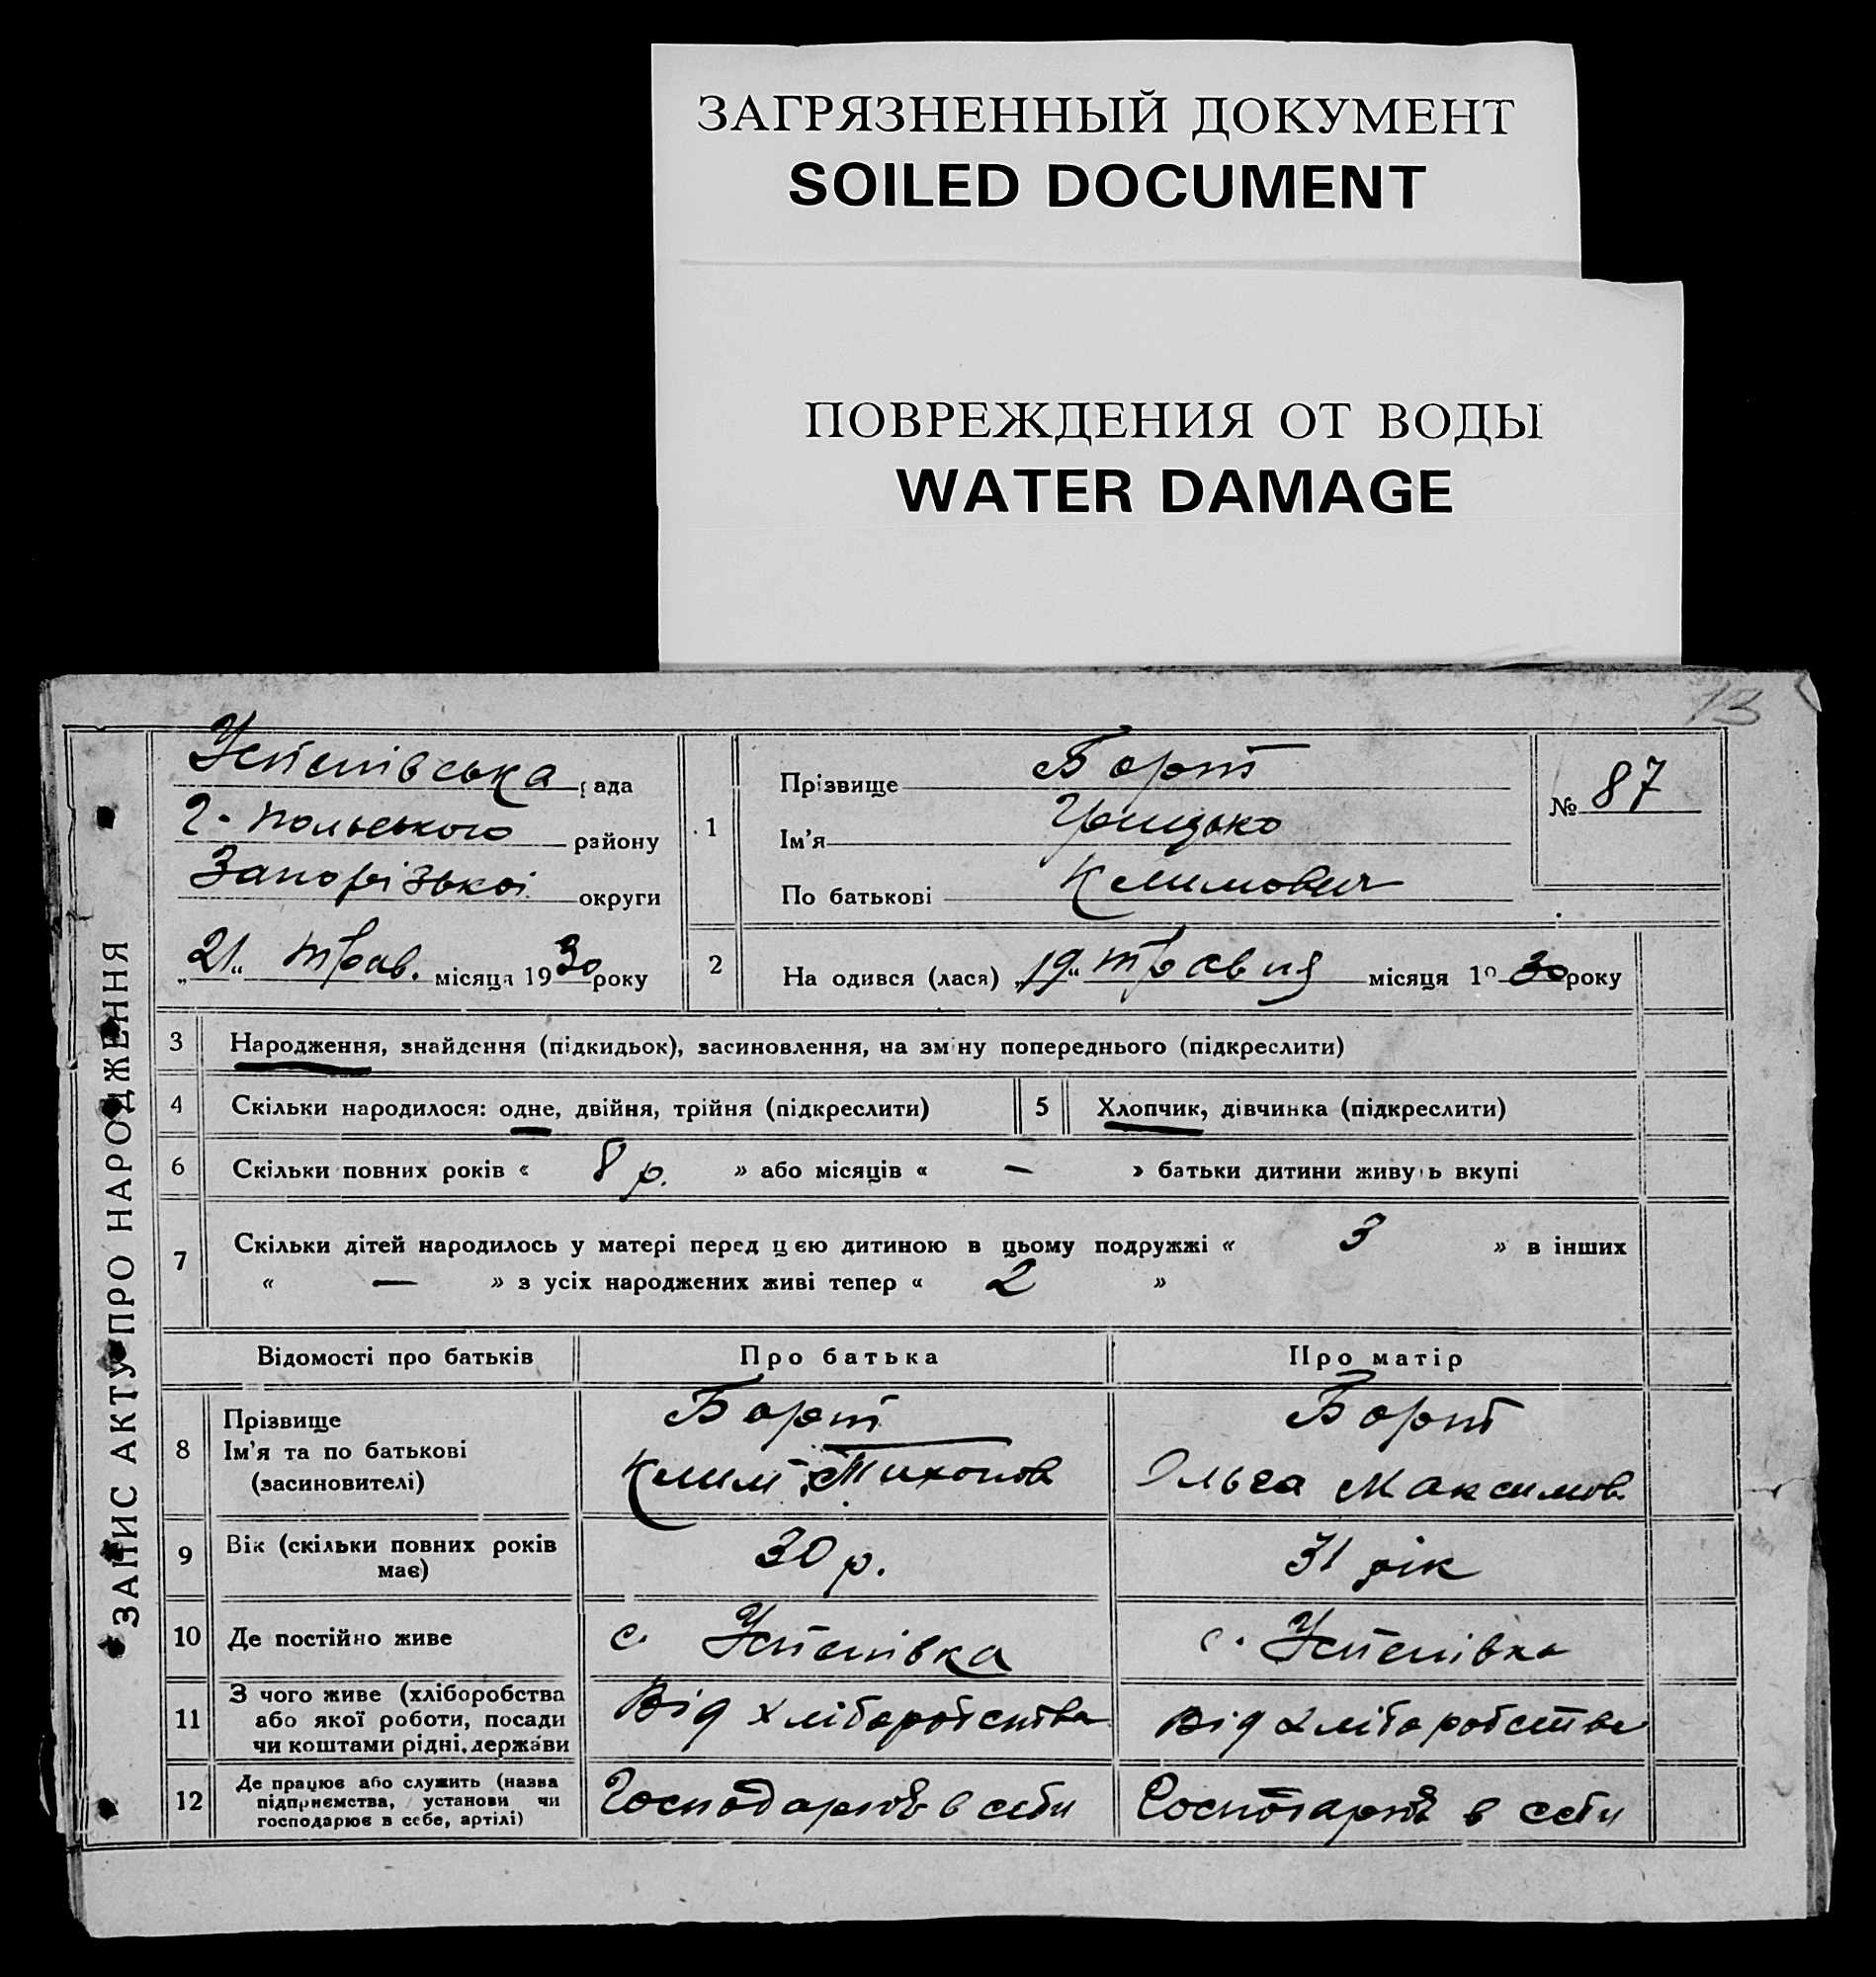 ЗАГРЯЗНЕННЫЙ ДОКУМЕНТ
SOILED DOCUMENT
ПОВРЕЖДЕНИЯ ОТ ВОДЫ
WATER DAMAGE
13
ЗАПИС АКТУ ПРО НАРОДЖЕННЯ
Успенівська рада
Г-польського району
Запорізької округи
„21“ трав. місяця 1930 року
1
Прізвище Борт
Ім'я Грицько
По батькові Климович
№ 87
2 На одився (лася) „19“ травня місяця 19 30 року
3 Народження, знайдення (підкидьок), засиновлення, на зміну попереднього (підкреслити)
4 Скільки народилося: одне, двійня, трійня (підкреслити)
5 Хлопчик, дівчинка (підкреслити)
6 Скільки повних років « 8 р. » або місяців « — » батьки дитини живуть вкупі
7 Скільки дітей народилось у матері перед цією дитиною в цьому подружжі « 3 » в інших
« — » з усіх народжених живі тепер « 2 »
Відомості про батьків Про батька Про матір
8 Прізвище
Ім'я та по батькові
(засиновителі)
Борт
Клим Тихонов
Борт
Ольга Максимов.
9 Вік (скільки повних років
має)
30 р.
31 рік
10 Де постійно живе
с. Успенівка
с. Успенівка
11 З чого живе (хліборобства
або якої роботи, посади
чи коштами рідні, держави
Від хліборобства
Від хліборобства
12 Де працює або служить (назва
підприємства, установи чи
господарює в себе, артілі)
Господарює в себи
Господарює в себи